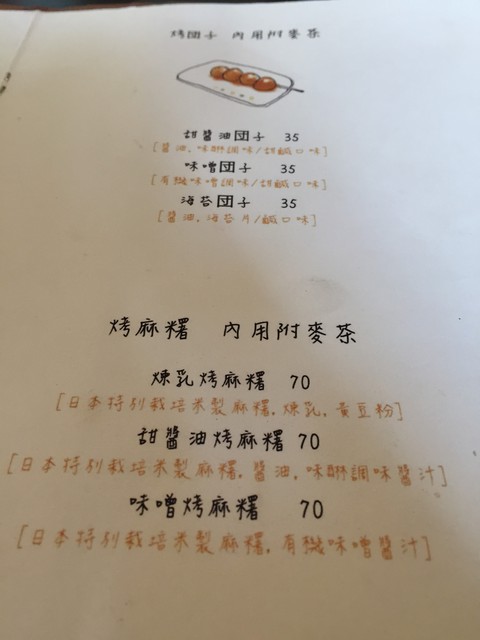 烤団子 內用附麥茶
甜醬油団子 35
[醬油,味醂調味/甜鹹口味]
味噌団子 35
[有機味噌調味/甜鹹口味]
海苔団子 35
[醬油,海苔片/鹹口味]
烤麻糬 內用附麥茶
煉乳烤麻糬 70
[日本特別栽培米製麻糬,煉乳,黃豆粉]
甜醬油烤麻糬 70
[日本特別栽培米製麻糬,醬油,味醂調味醬汁]
味噌烤麻糬 70
[日本特別栽培米製麻糬,有機味噌醬汁]